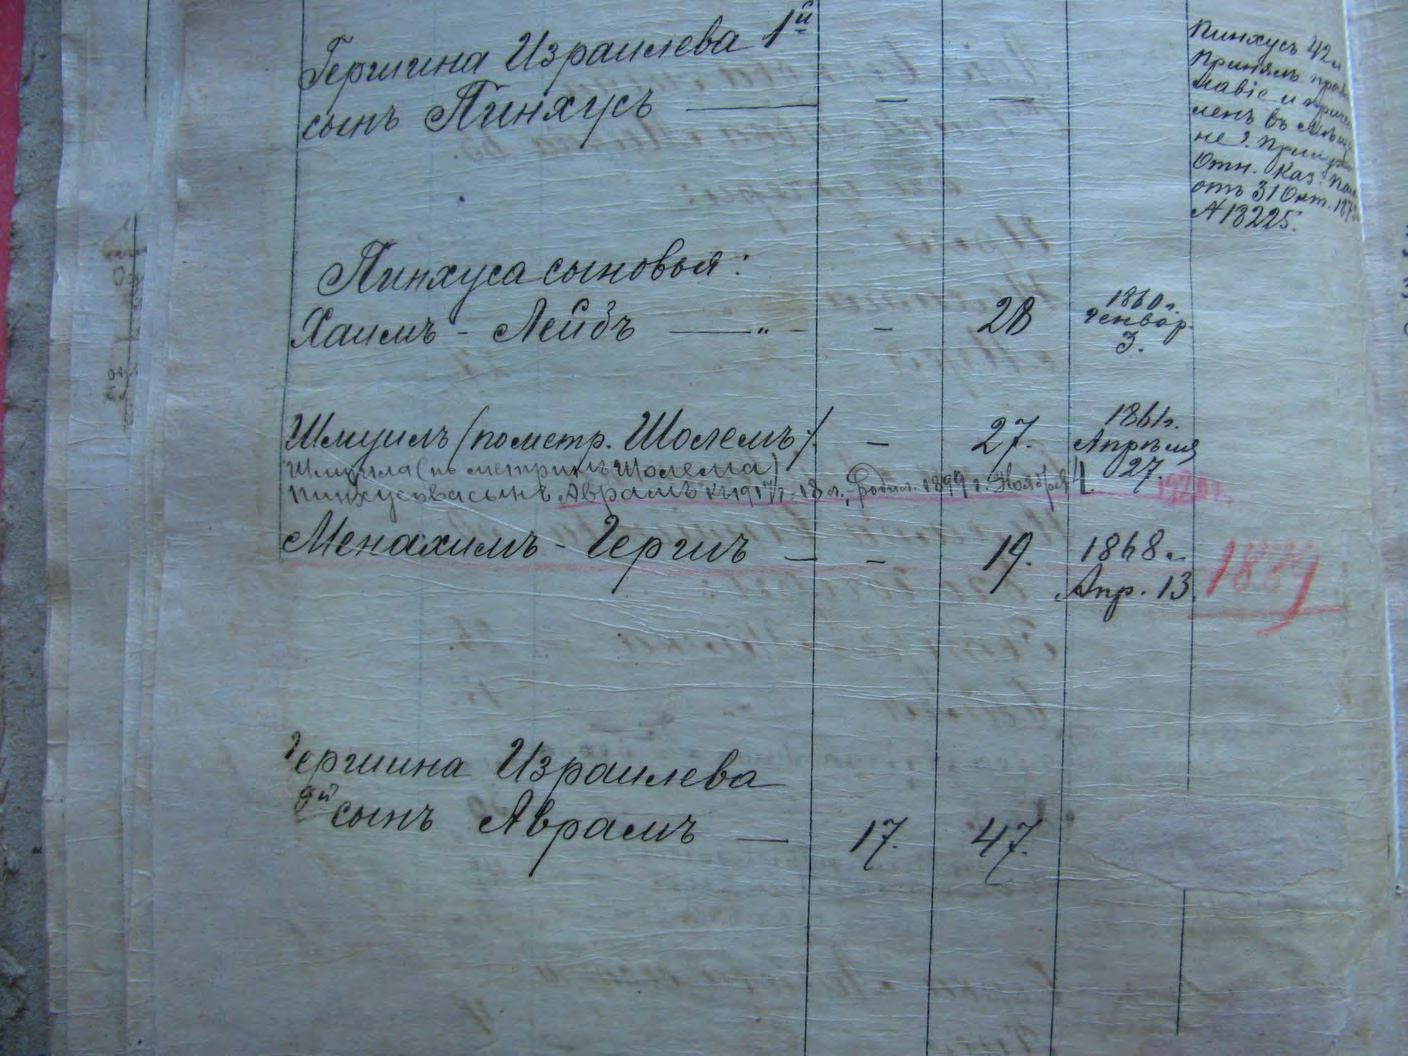 Гершина Израилева 1й
сынъ Пинхусъ — — —
Пинхусъ 42 л
Принялъ пра
славіе и причи
ленъ въ
не
Отн. Каз. Пал
отъ 31 Окт. 187
№18225.
Пинхуса сыновья:
Хаимъ - Лейбъ — „ - - 28 1860 г. Генвар. 3.
Шмуилъ (по метр. Шолемъ). - 27. 1861 г. Апрѣля 27.
Шмуила (по метрикѣ Шолема)
Пинхусова сынъ Аврамъ къ 1917 г. 18 л., родил. 1899 г. Ноября 1920 г.
Менахимъ - Гершъ — - 19. 1868 г. Апр. 13. 1889
Гершина Израилева
й сынъ Аврамъ — 17. 47.